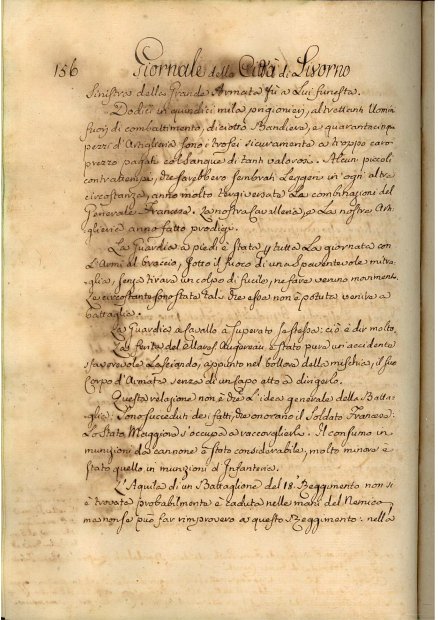 156 Giornale della Città di Livorno
Sinistra della Grande Armata fù a Lui funesta.
Dodici in quindici mila prigionieri, altrettanti Uomini
fuori di combattimento, diciotto Bandiere, e quarantacinque
pezzi d'Artiglieria sono trofei sicuramente a troppo caro
prezzo pagati col sangue di tanti valorosi. Alcuni piccoli
contrattempi, che sarebbero sembrati Leggeri in ogni altra
circostanza, anno molto tergiversate Le combinazioni del
Generale Francese. La nostra Cavalleria, e La nostra Arti-
glieria anno fatto prodigi.
La Guardia a piedi è stata p tutta La giornata con
L'Armi al braccio, sotto il fuoco di una spaventevole mitra-
glia, senza tirare un colpo di fucile, ne fare verun moviment.
Le circostanze sono state tali che essa non è potuta venire a
battaglia.
La Guardia a Cavallo à superato se stessa: ciò è dir molto.
La ferita del Maresc. Augereau è stato pure un accidente
sfavorevole Lasciando, appunto nel bollore della mischia, il suo
Corpo d'Armata senza di un capo atto a dirigerlo.
Questa relazione non è che L'idea generale della Batta-
glia. Sono succeduti de' fatti, che onorano il Soldato Francese:
Lo Stato Maggiore s'occupa a raccoglierli. Il consumo in
munizioni da cannone è stato considerabile, molto minore è
stato quello in munizioni d'Infanteria.
L'Aquila di un Battaglione del 18.° Reggimento non si
è trovata probabilmente è caduta nelle mani del Nemico,
ma non se può far rimprovero a questo Reggimento: nella